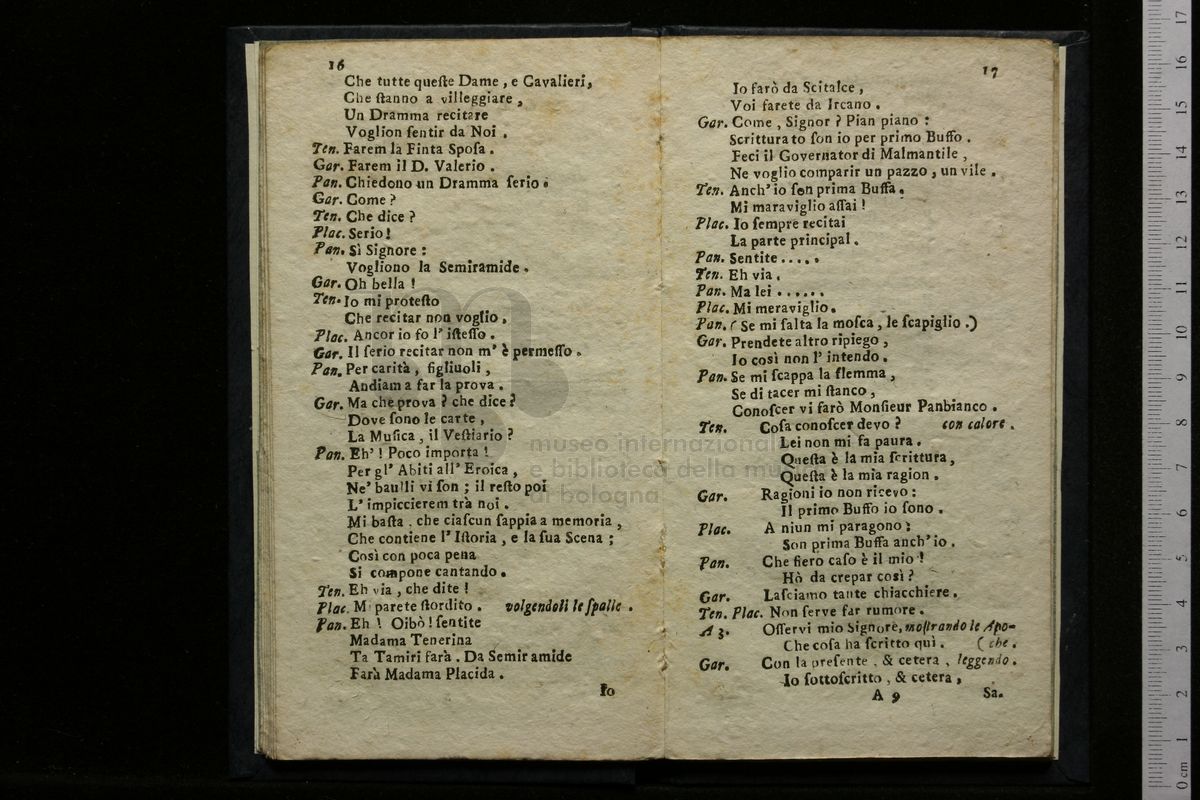 16
Che tutte queſte Dame, e Cavalieri,
Che ſtanno a villeggiare,
Un Dramma recitare
Voglion ſentir da Noi.
Ten. Farem la Finta Spoſa.
Gar. Farem il D. Valerio.
Pan. Chiedono un Dramma ſerio.
Gar. Come?
Ten. Che dice?
Plac. Serio!
Pan. Sì Signore:
Vogliono la Semiramide.
Gar. Oh bella!
Ten. Io mi proteſto
Che recitar non voglio.
Plac. Ancor io fo l' iſteſſo.
Gar. Il ſerio recitar non m' è permeſſo.
Pan. Per carità, figliuoli,
Andiam a far la prova.
Gar. Ma che prova? che dice?
Dove ſono le carte,
La Muſica, il Veſtiario?
Pan. Eh'! Poco importa!
Per gl' Abiti all' Eroica,
Ne' baulli vi ſon; il reſto poi
L' impiccierem trà noi.
Mi baſta. che ciaſcun ſappia a memoria,
Che contiene l' Iſtoria, e la ſua Scena;
Così con poca pena
Si compone cantando.
Ten. Eh via, che dite!
Plac. Mi parete ſtordito. volgendoli le ſpalle.
Pan. Eh! Oibò! ſentite
Madama Tenerina
Ta Tamiri farà. Da Semiramide
Farà Madama Placida.
Io
17
Io farò da Scitalce,
Voi farete da Ircano.
Gar. Come, Signor? Pian piano:
Scritturato ſon io per primo Buffo.
Feci il Governator di Malmantile,
Ne voglio comparir un pazzo, un vile.
Ten. Anch' io ſon prima Buffa.
Mi maraviglio aſſai!
Plac. Io ſempre recitai
La parte principal.
Pan. Sentite.....
Ten. Eh via.
Pan. Ma lei......
Plac. Mi meraviglio.
Pan. (Se mi ſalta la moſca, le ſcapiglio.)
Gar. Prendete altro ripiego,
Io così non l' intendo.
Pan. Se mi ſcappa la flemma,
Se di tacer mi ſtanco,
Conoſcer vi farò Monſieur Panbianco.
Ten. Coſa conoſcer devo? con calore.
Lei non mi fa paura.
Queſta è la mia ſcrittura,
Queſta è la mia ragion.
Gar. Ragioni io non ricevo:
Il primo Buffo io ſono.
Plac. A niun mi paragono:
Son prima Buffa anch' io.
Pan. Che fiero caſo è il mio!
Hò da crepar così?
Gar. Laſciamo tante chiacchiere.
Ten. Plac. Non ſerve far rumore.
A 3. Oſſervi mio Signore, moſtrando le Apo-
Che coſa ha ſcritto quì. (che.
Gar. Con la preſente, & cetera, leggendo.
Io ſottoſcritto, & cetera,
A 9 Sa.
museo internazionale
e biblioteca della mu
di bologna
0 cm 1 2 3 4 5 6 7 8 9 10 11 12 13 14 15 16 17